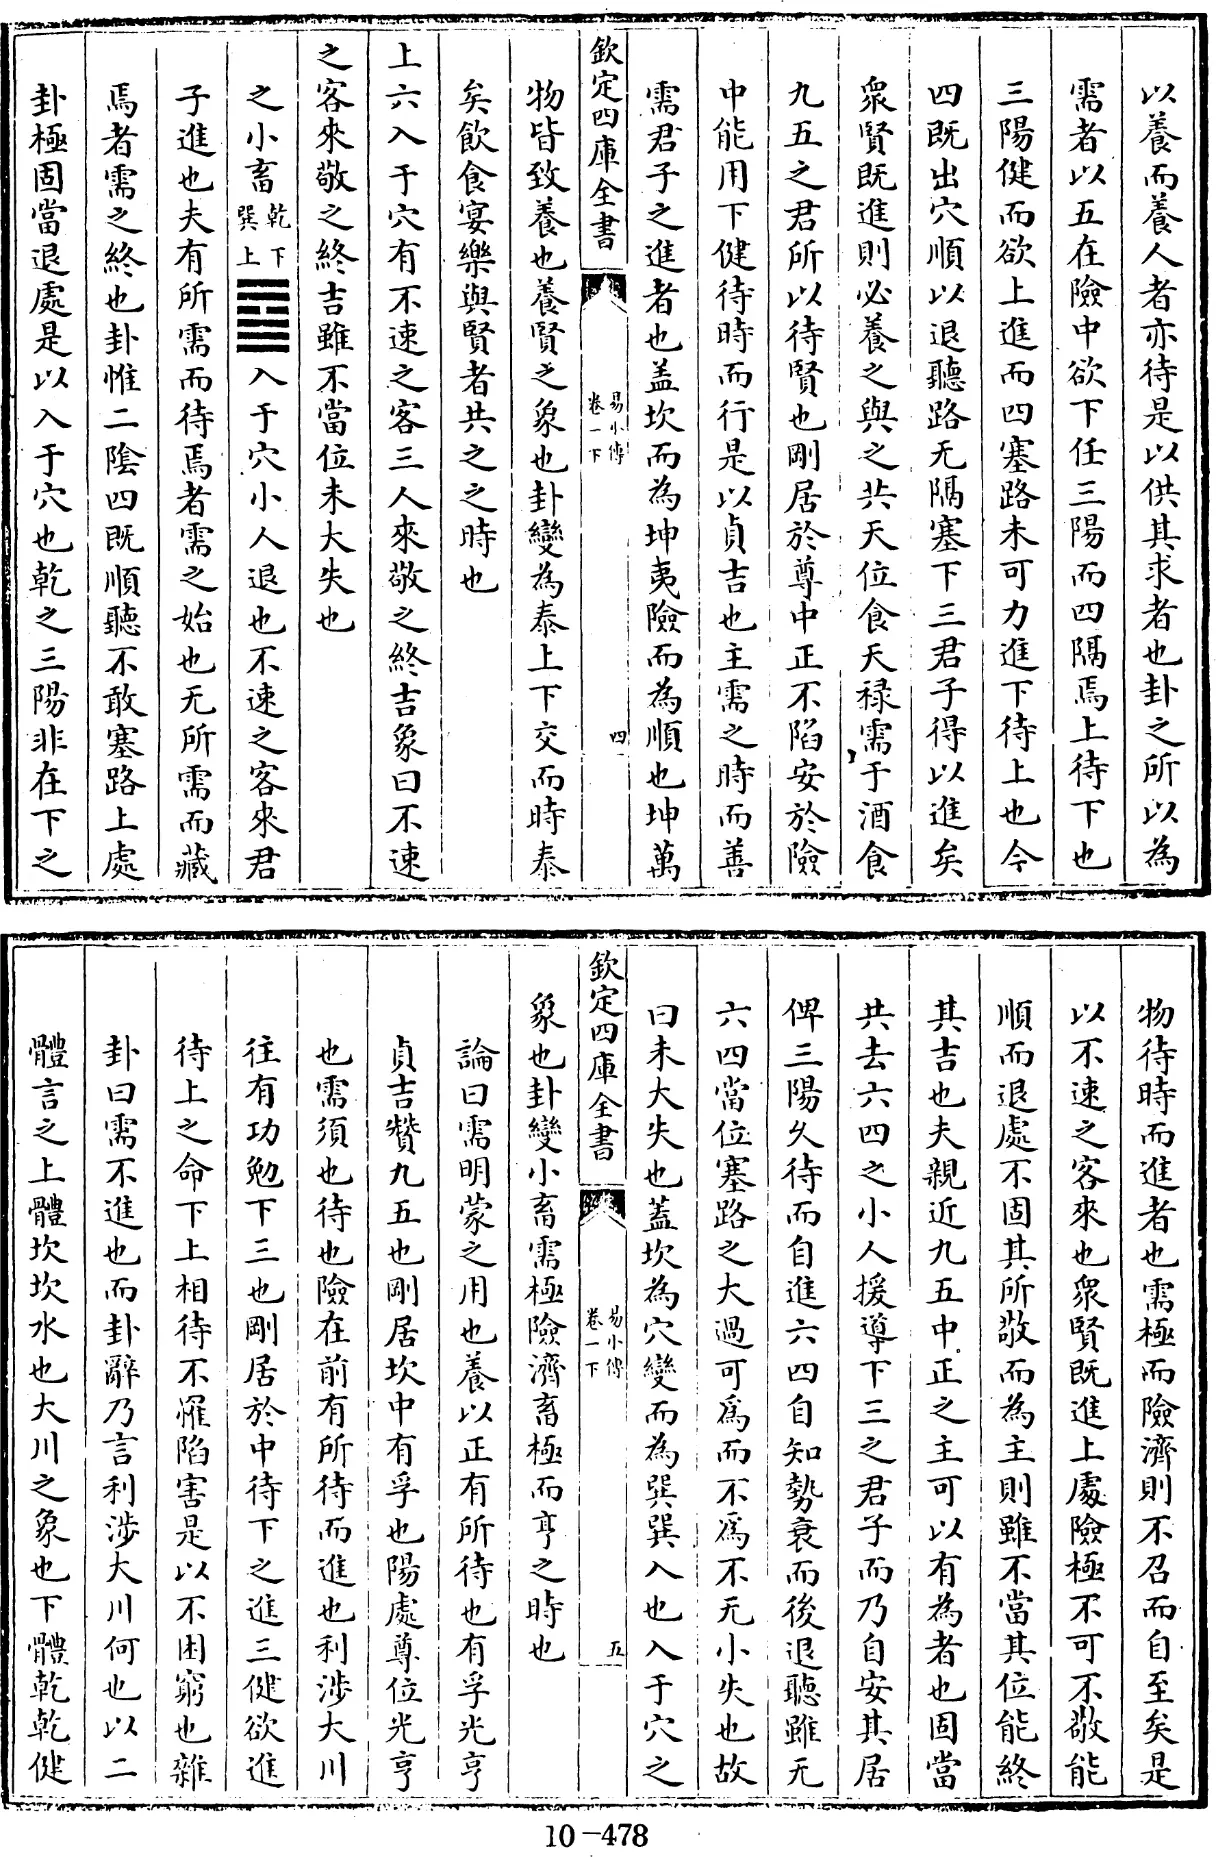 以養而養人者亦待是以供其求者也卦之所以為
需者以五在險中欲下任三陽而四隔焉上待下也
三陽健而欲上進而四塞路未可力進下待上也今
四既出穴順以退聽路无隔塞下三君子得以進矣
衆賢既進則必養之與之共天位食天祿需于酒食
九五之君所以待賢也剛居於尊中正不陷安於險
中能用下健待時而行是以貞吉也主需之時而善
需君子之進者也盖坎而為坤夷險而為順也坤萬
欽定四庫全書
易小傳
卷一下
四
物皆致養也養賢之象也卦變為泰上下交而時泰
矣飲食宴樂與賢者共之之時也
上六入于穴有不速之客三人來敬之終吉象曰不速
之客來敬之終吉雖不當位未大失也
之小畜乾下巽上入于穴小人退也不速之客來君
子進也夫有所需而待焉者需之始也无所需而藏
焉者需之終也卦惟二陰四既順聽不敢塞路上處
卦極固當退處是以入于穴也乾之三陽非在下之
物待時而進者也需極而險濟則不召而自至矣是
以不速之客來也衆賢既進上處險極不可不敬能
順而退處不固其所敬而為主則雖不當其位能終
其吉也夫親近九五中正之主可以有為者也固當
共去六四之小人援導下三之君子而乃自安其居
俾三陽久待而自進六四自知勢衰而後退聽雖无
六四當位塞路之大過可為而不為不无小失也故
曰未大失也蓋坎為穴變而為巽巽入也入于穴之
欽定四庫全書
易小傳
卷一下
五
象也卦變小畜需極險濟畜極而亨之時也
論曰需明蒙之用也養以正有所待也有孚光亨
貞吉贊九五也剛居坎中有孚也陽處尊位光亨
也需須也待也險在前有所待而進也利涉大川
往有功勉下三也剛居於中待下之進三健欲進
待上之命下上相待不罹陷害是以不困窮也雜
卦曰需不進也而卦辭乃言利涉大川何也以二
體言之上體坎坎水也大川之象也下體乾乾健
10-478